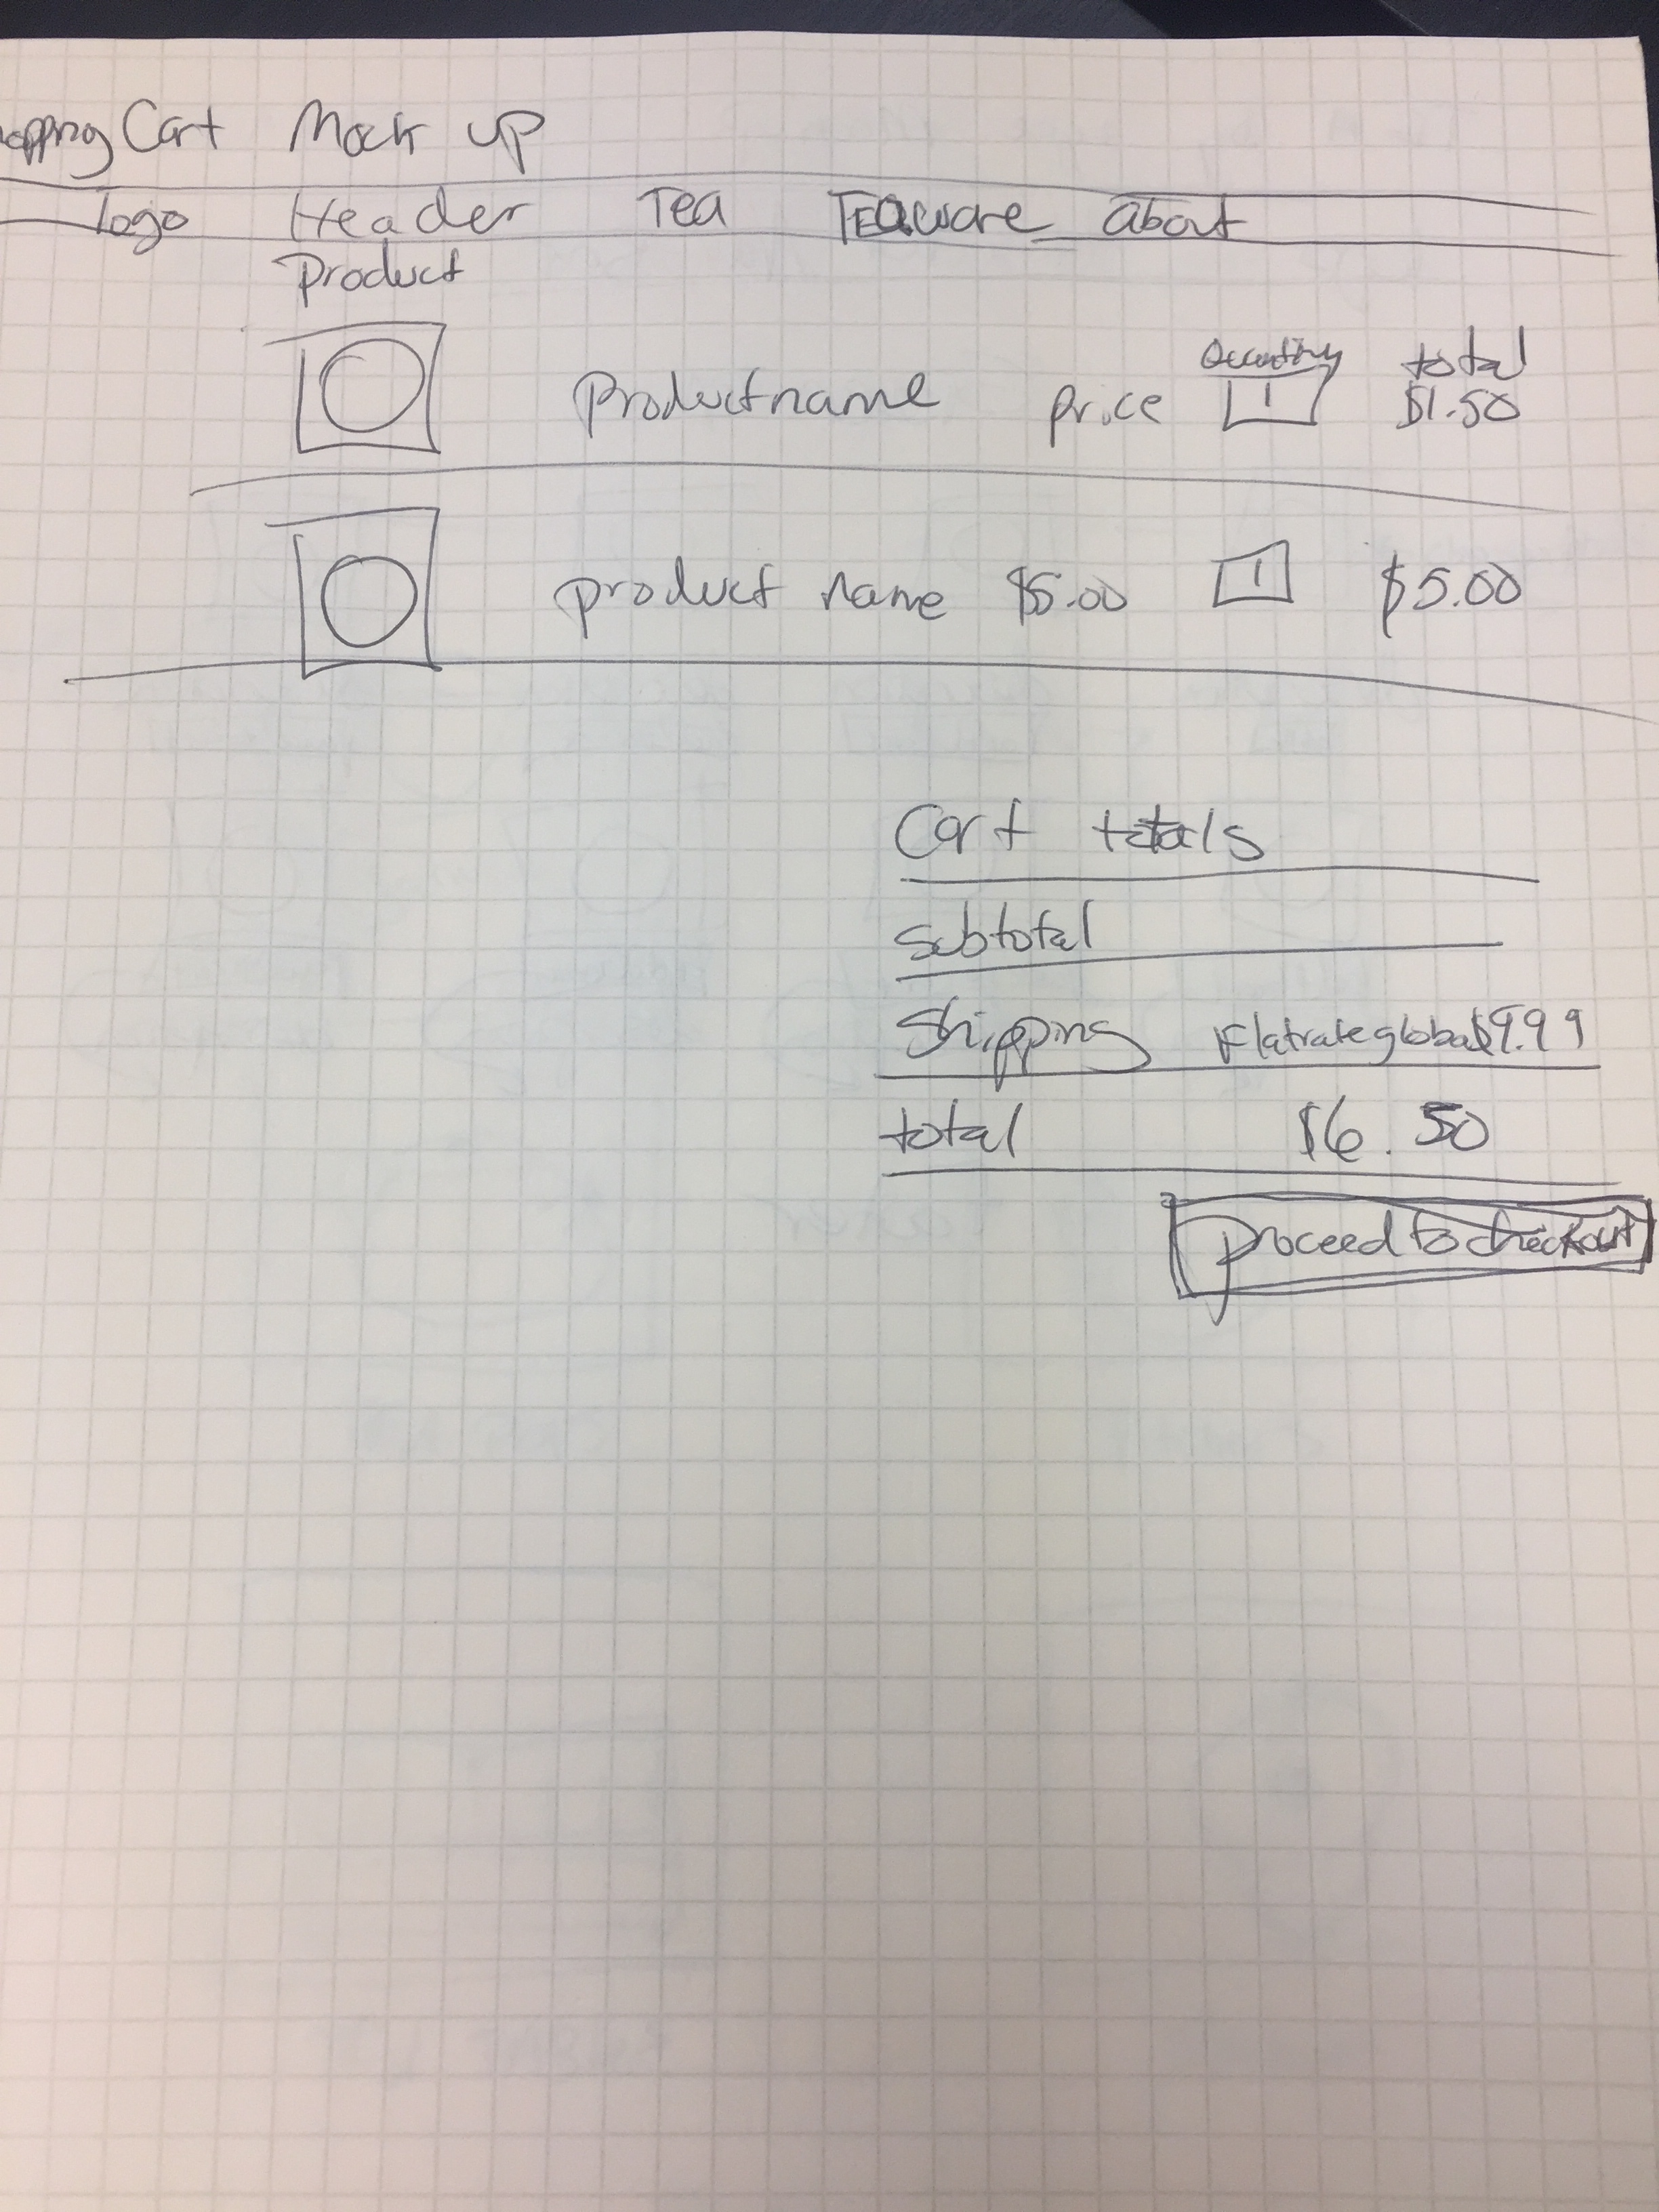 opping Cart Mock up
logo Header Tea Teaware about
Product
Quantity total
Productname price 1 $1.50
product name $5.00 1 $5.00
Cart totals
Subtotal
Shipping Flatrateglobal $9.99
total $6.50
proceed to checkout